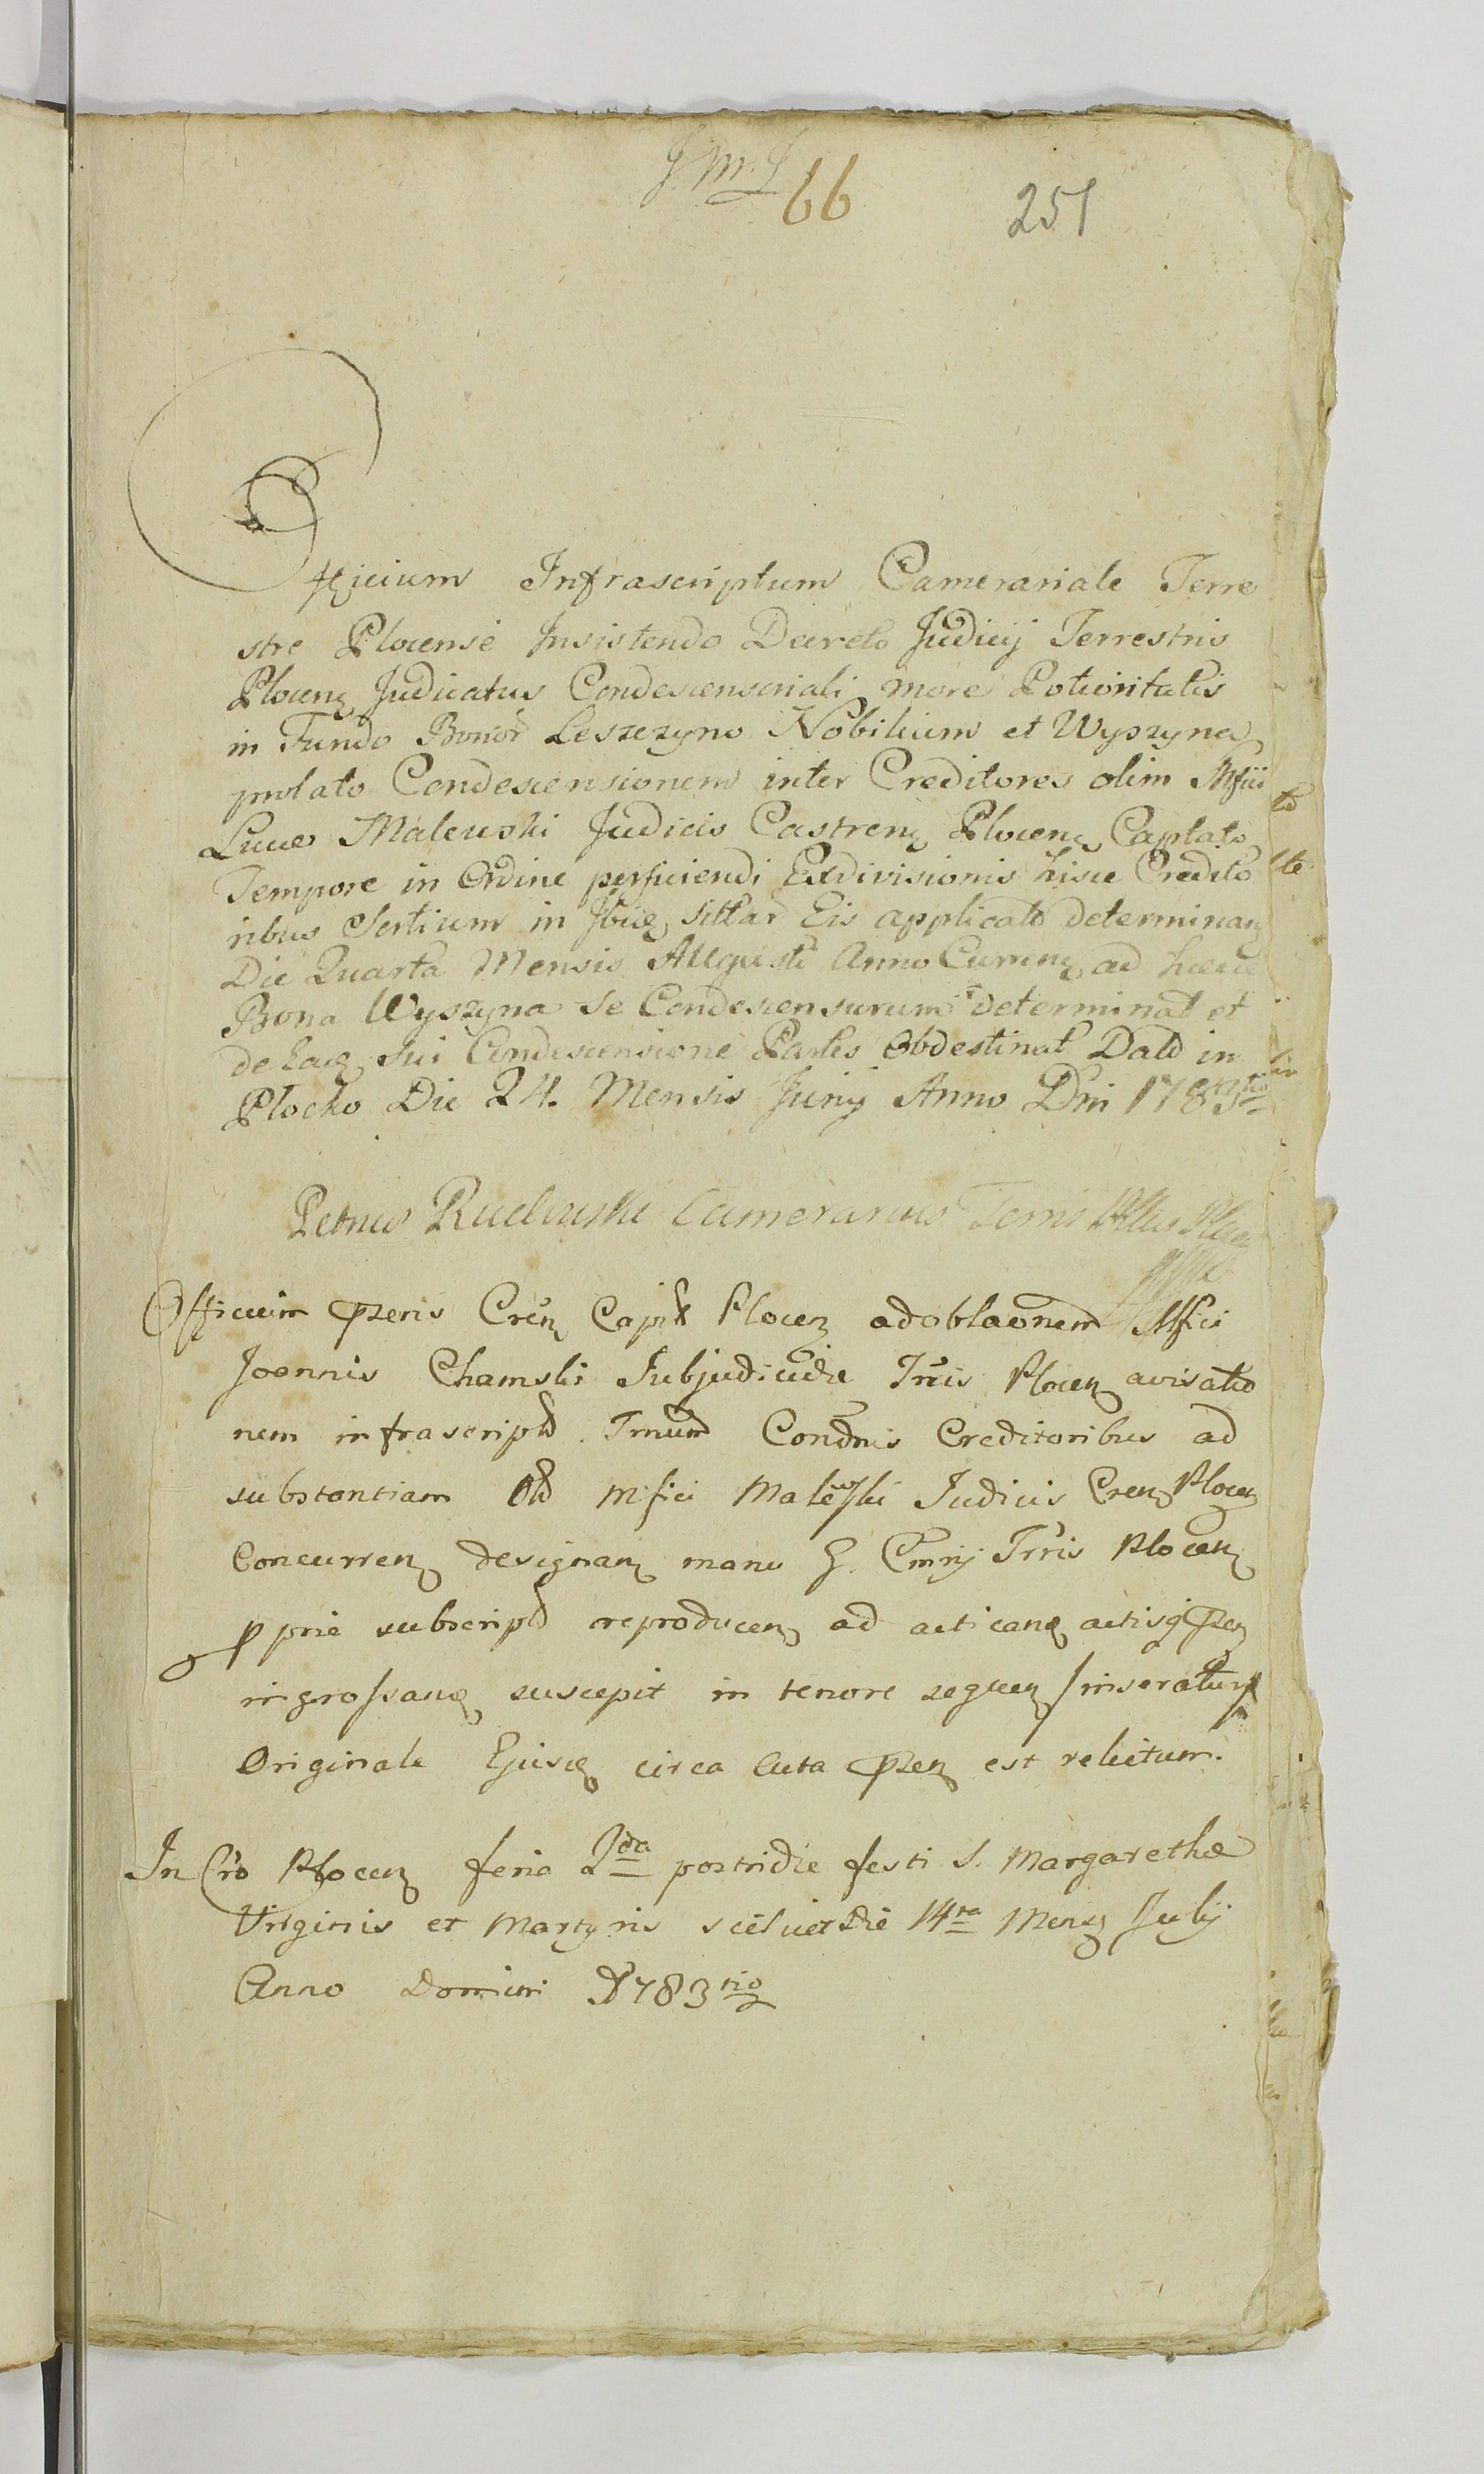 J. M. J
66
251
Officium Infrascriptum Camerariale Terre
stre Plocense Insistendo Decreto Judicij Terrestris
Plocen Judicatus Condescensoriali more Potioritatis
in Fundo Bonor Leszczyno Nobilium et Wyszyna
prolato Condescensionem inter Creditores olim Mfici
Lucæ Malewski Judicis Castren Plocen Captato
Tempore in Ordine perficiendi Exdivisionis hisce Credito
ribus Sertium in Eis applicato determinan
Die Quarta Mensis Augusti Anno Curren ad hæce
Bona Wyszyna se Condescensurum determinat et
de Eaq sui Condescensione Partes Obdestinat Dato in
Plocko Die 24. Mensis Junij Anno Dni 1783tio
Petrus Rudowski Camerarius Terris
Officium pzens Cren Capit Plocen ad oblaonem Mfici
Joannis Chamski Subjudicis Tris Plocen avisatio
nem infrascript Condnis Creditoribus ad
substantiam Old Mfici Malewski Judicis Cren Plocen
Concurren designan manu G. Cmrij Trris Plocen
pprie subscript reproducen ad acticand actisq pzen
ingrossand suscepit in tenore sequen /inseratur/
Originale Ejusq circa acta pzen est relictum.
In Cro Plocen feria 2da postridie festi S. Margarethæ
Virginis et Martyris scilicet die 14ta Mens Julij
Anno Domini 1783tio